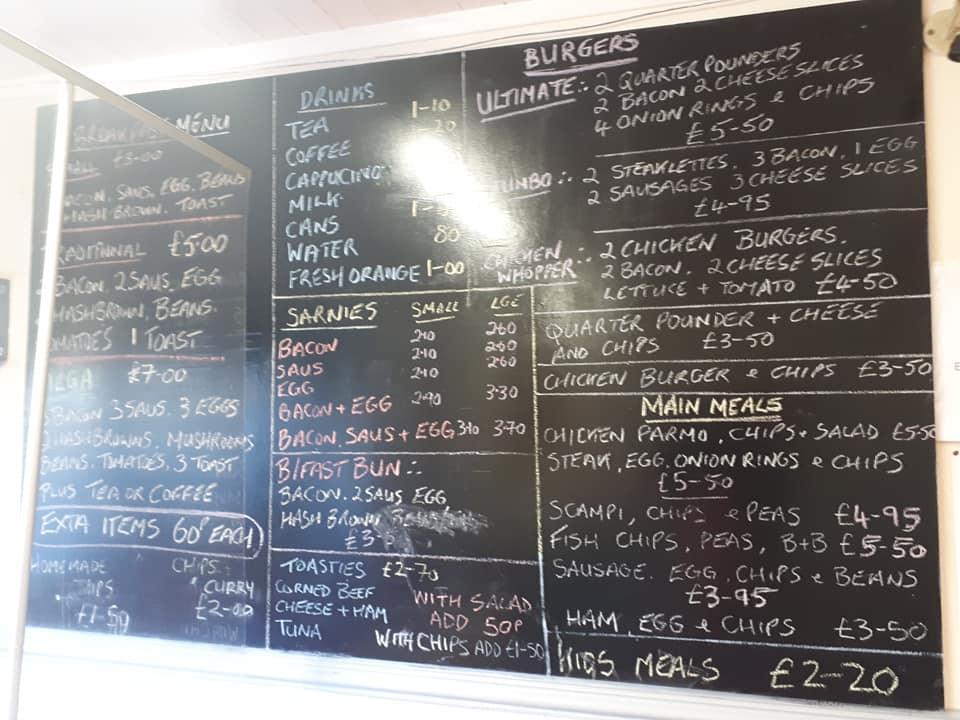 BREAKFAST MENU
SMALL £3-00
BACON, SAUS, EGG, BEANS
HASH BROWN. TOAST
TRADITIONAL £5-00
BACON. 2 SAUS, EGG
HASHBROWN, BEANS.
TOMATOES 1 TOAST
£7-00
BACON 3 SAUS. 3 EGGS
HASHBROWNS. MUSHROOMS
BEANS. TOMATOES. 3 TOAST
PLUS TEA OR COFFEE
EXTA ITEMS 60P EACH
HOMEMADE
CHIPS
£1-50
CHIPS
CURRY
£2-00
DRINKS
TEA 1-10
COFFEE
CAPPUCINO
MILK
CANS
WATER 80
FRESH ORANGE 1-00
SARNIES SMALL LGE
BACON 2-10 2-60
SAUS 2-10 2-60
EGG 2-10 2-60
BACON + EGG 2-90 3-30
BACON, SAUS + EGG 3-10 3-70
B/FAST BUN :.
BACON. 2 SAUS EGG
HASH BROWN
TOASTIES £2-70
CORNED BEEF
CHEESE + HAM
TUNA
WITH SALAD
ADD 50P
WITH CHIPS ADD £1-50
BURGERS
ULTIMATE :. 2 QUARTER POUNDERS
2 BACON 2 CHEESE SLICES
4 ONION RINGS & CHIPS
£5-50
JUMBO :. 2 STEAKLETTES. 3 BACON, 1 EGG
2 SAUSAGES 3 CHEESE SLICES
£4-95
CHICKEN WHOPPER :. 2 CHICKEN BURGERS.
2 BACON. 2 CHEESE SLICES
LETTUCE + TOMATO £4-50
QUARTER POUNDER + CHEESE
AND CHIPS £3-50
CHICKEN BURGER & CHIPS £3-50
MAIN MEALS
CHICKEN PARMO, CHIPS + SALAD £5-50
STEAK, EGG, ONION RINGS & CHIPS
£5-50
SCAMPI, CHIPS & PEAS £4-95
FISH CHIPS, PEAS, B+B £5-50
SAUSAGE. EGG, CHIPS & BEANS
£3-95
HAM, EGG & CHIPS £3-50
KIDS MEALS £2-20